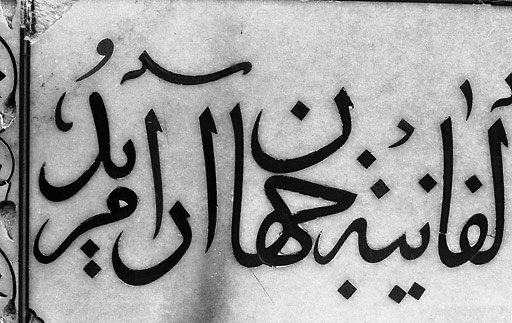 لفانیه جهان آرا مرید